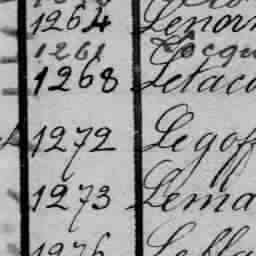 1264 Lenor
1261 Cocqu
1268 Letac
1272 Legoff
1273 Lema
1276 Lebla